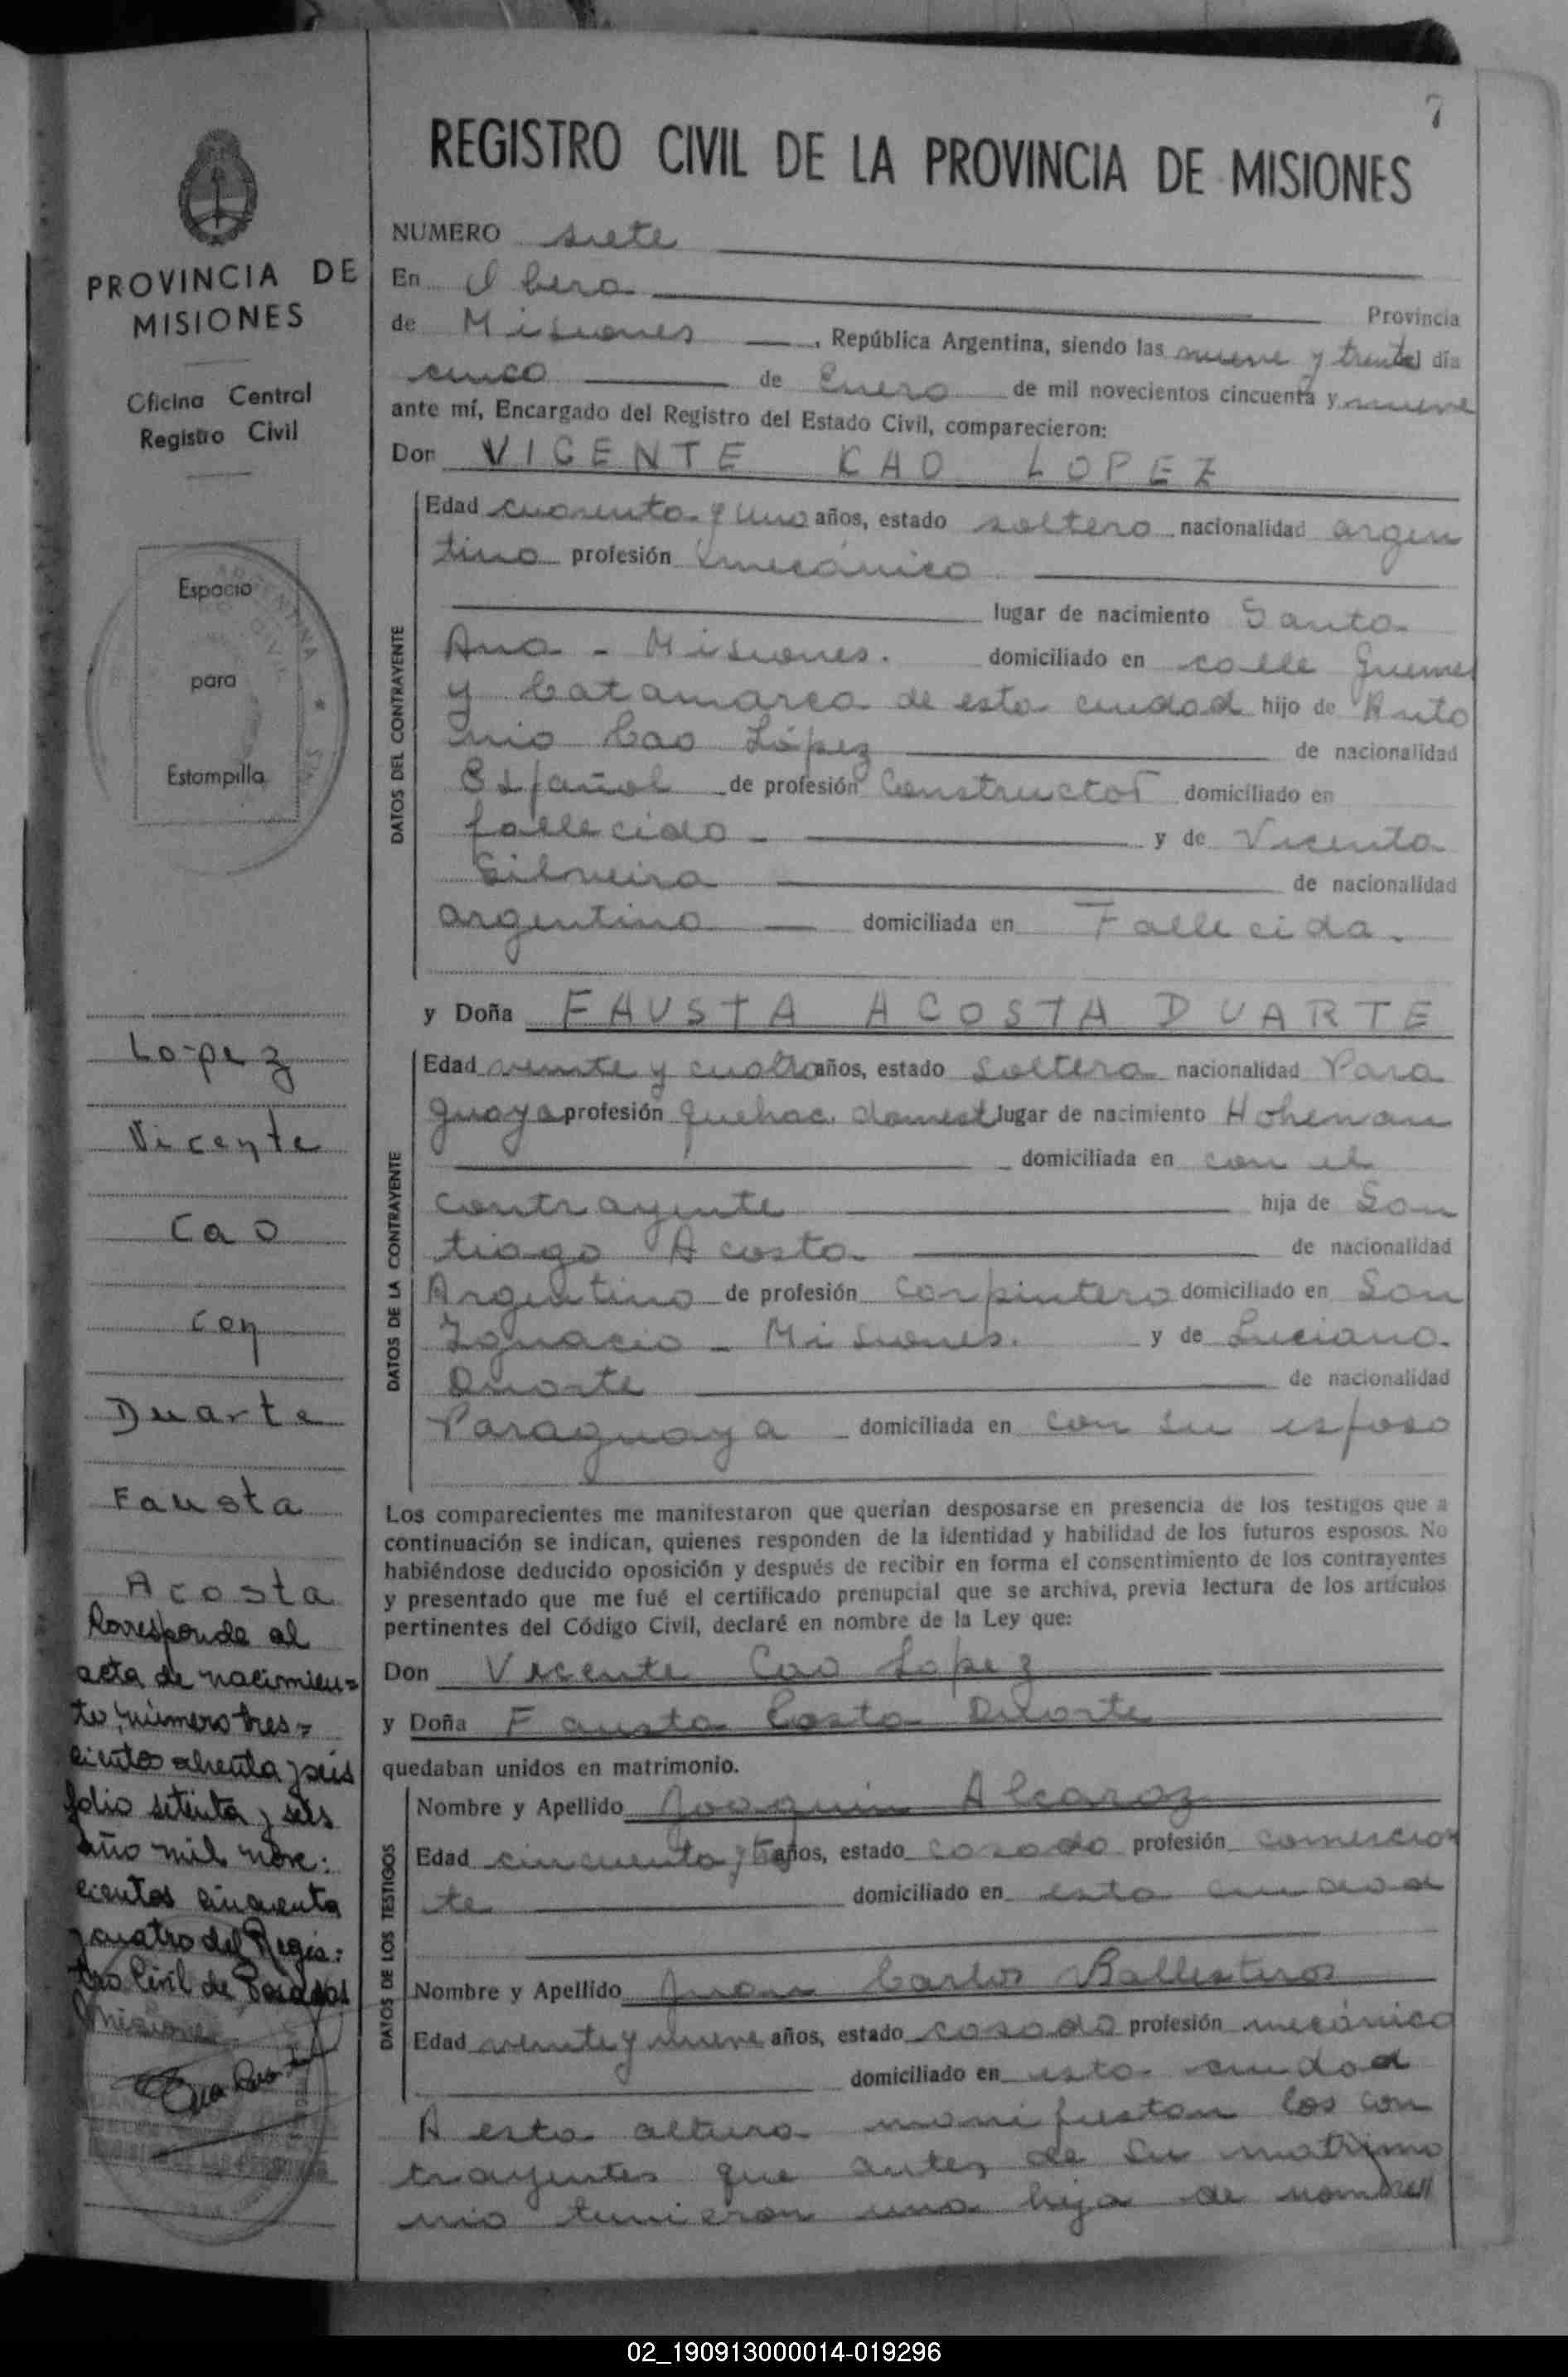 7
REGISTRO CIVIL DE LA PROVINCIA DE MISIONES
PROVINCIA DE
MISIONES
Oficina Central
Registro Civil
Espacio
para
Estampilla
Lopez
Vicente
Cao
con
Duarte
Fausta
Acosta
Corresponde al
acta de nacimien=
to, número tres=
cientos ochenta y seis
folio setenta y seis
año mil nove:
cientos cincuenta
y cuatro del Regis:
tro Civil de Posadas
Misiones
NUMERO siete
En Obera
Provincia
de Misiones, República Argentina, siendo las nueve y treinta día
cinco de Enero de mil novecientos cincuenta y nueve
ante mí, Encargado del Registro del Estado Civil, comparecieron:
Don VICENTE CAO LOPEZ
DATOS DEL CONTRAYENTE
Edad cuarenta y uno años, estado soltero nacionalidad argen
tino profesión mecánico
lugar de nacimiento Santa
Ana - Misiones. domiciliado en calle Guemes
y Catamarca de esta ciudad hijo de Anto
nio Cao López de nacionalidad
Español de profesión Constructor domiciliado en
fallecido - y de Vicenta
Silveira de nacionalidad
argentina domiciliada en Fallecida.
y Doña FAUSTA ACOSTA DUARTE
DATOS DE LA CONTRAYENTE
Edad veinte y cuatro años, estado soltera nacionalidad Para
guaya profesión quehac. domest lugar de nacimiento Hohenau
domiciliada en con el
contrayente hija de San
tiago Acosta de nacionalidad
Argentino de profesión Carpintero domiciliado en San
Ignacio - Misiones. y de Luciana
Duarte de nacionalidad
Paraguaya domiciliada en con su esposo
Los comparecientes me manifestaron que querían desposarse en presencia de los testigos que a
continuación se indican, quienes responden de la identidad y habilidad de los futuros esposos. No
habiéndose deducido oposición y después de recibir en forma el consentimiento de los contrayentes
y presentado que me fué el certificado prenupcial que se archiva, previa lectura de los artículos
pertinentes del Código Civil, declaré en nombre de la Ley que:
Don Vicente Cao Lopez
y Doña Fausta Costa Duarte
quedaban unidos en matrimonio.
DATOS DE LOS TESTIGOS
Nombre y Apellido Joaquin Alcaraz
Edad cincuenta y tres años, estado casado profesión comercian
te domiciliado en esta ciudad
Nombre y Apellido Juan Carlos Ballesteros
Edad veinte y nueve años, estado casado profesión mecánico
domiciliado en esta ciudad
A esta altura manifiestan los con
trayentes que antes de su matrimo
nio tuvieron una hija de nombre
02_190913000014-019296